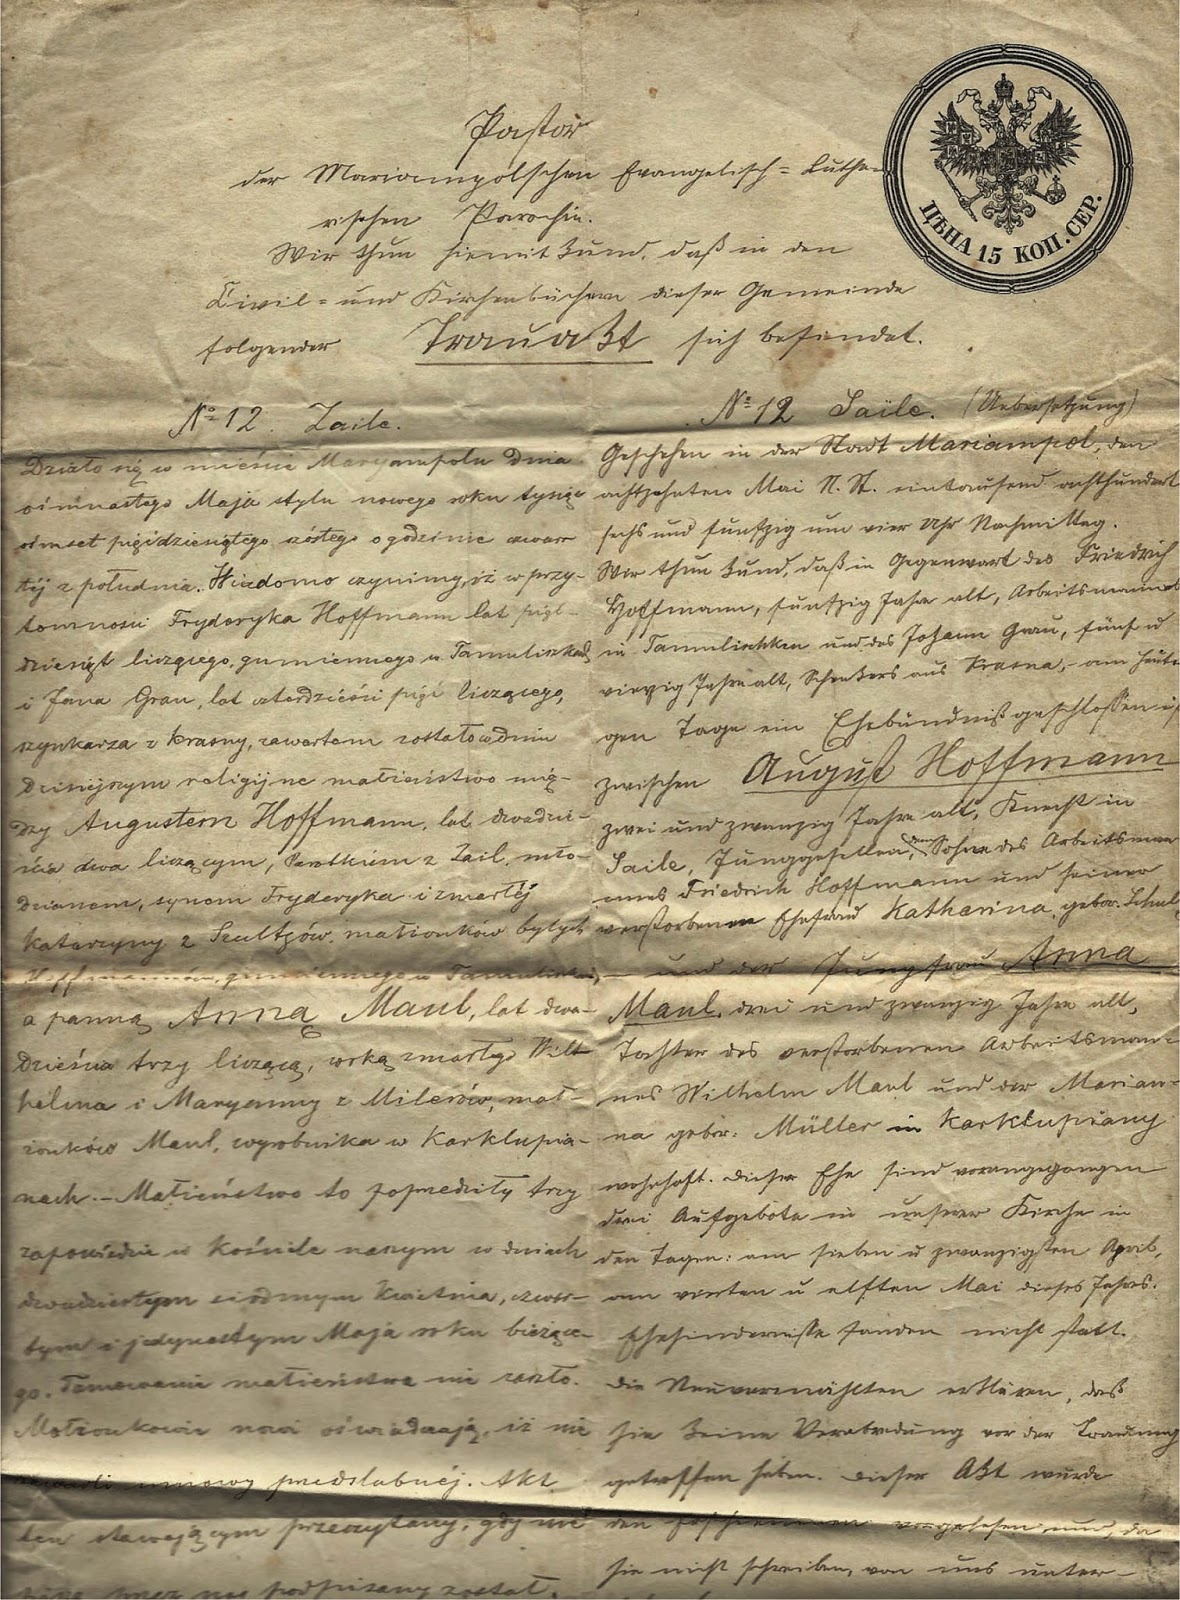 Pastor
der Mariampolschen Evangelisch=Luthe
rschen Parochie.
Wir thun hiemit kund, daß in den
Civil= und Kirchenbüchern dieser Gemeinde
folgender Trauakt sich befindet.
ЦѢНА 15 КОП. СЕР.
№ 12. Zaile.
Działo się w mieście Maryampolu dnia
ośmnastego Maja stylu nowego roku tysiąc
ośmset pięćdziesiątego szóstego o godzinie czwar-
téj z południa. Wiadomo czynimy, iż w przy-
tomności Fryderyka Hoffmann lat pięć-
dziesiąt liczącego, gumiennego w Tamuliszkach
i Jana Grau, lat czterdzieści pięć liczącego,
szynkarza z Krasny, zawartem zostało w dniu
dzisiejszym religijne małżeństwo mię-
dzy Augustem Hoffmann, lat dwadzie-
ścia dwa liczącym, Parobkiem z Zail, mło-
dzianem, synem Fryderyka i zmarłéj
Katarzyny z Szultzów, małżonków byłych
Hoffmannów, gumiennego w Tamuliszkach,
a panną Anną Maul, lat dwa-
dzieścia trzy liczącą, córką zmarłego Wilh
helma i Maryanny z Milerów, mał-
żonków Maul, wyrobnika w Karklupia-
nach. – Małżeństwo to poprzedziły trzy
zapowiedzie w Kościele naszym w dniach
dwudziestym siódmym Kwietnia, czwar-
tym i jedynastym Maja roku bieżące-
go. Tamowanie małżeństwa nie zaszło.
Małżonkowie nowi oświadczają, iż nie
zawarli umowy przedślubnéj. Akt
ten stawającym przeczytany, gdy nie
przez nas podpisany został.
№ 12 Saile. (Uebersetzung)
Geschehen in der Stadt Mariampol, den
achtzehnten Mai N. St. eintausend achthundert
sechs und fünfzig um vier Uhr Nachmittag.
Wir thun kund, daß in Gegenwart des Friedrich
Hoffmann, fünfzig Jahre alt, Arbeitsmann
in Tamulischken und des Johann Grau, fünf u
vierzig Jahre alt, Schenkers aus Krasna, – am heuti
gen Tage ein Ehebündniß geschlossen ist
zwischen August Hoffmann
zwei und zwanzig Jahre alt, Knecht in
Saile, Junggesellen, dem Sohne des Arbeitsman
nes Friedrich Hoffmann und seiner
verstorbenen Ehefrau Katharina, gebor. Schul
– und der Jungfrau Anna
Maul, drei und zwanzig Jahre alt,
Tochter des verstorbenen Arbeitsman-
nes Wilhelm Maul und der Marian-
na gebor: Müller in Karklupiany
wohnhaft. Dieser Ehe sind vorangegangen
drei Aufgebote in unserer Kirche in
den Tagen: am sieben u zwanzigsten April,
am vierten u elften Mai dieses Jahres.
Ehehindernisse fanden nicht statt.
Die Neuvermählten erklären, daß
sie keine Verabredung vor der Trauung
getroffen haben. Dieser Akt wurde
den Erschienenen vorgelesen und, da
sie nicht schreiben, von uns unter-